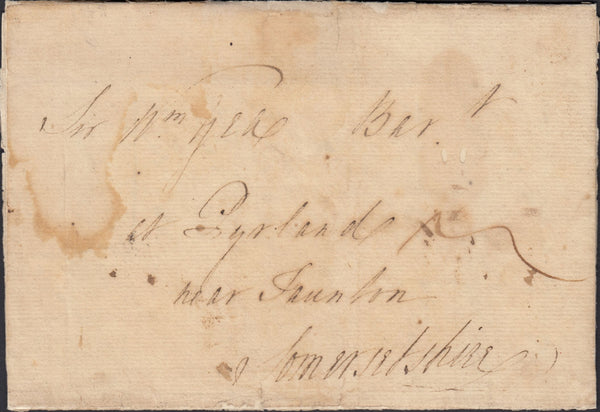 Sir Wm Yea Bart
at Pyrland
near Taunton
Somersetshire